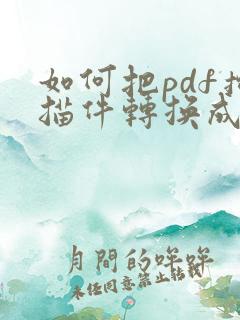 如何把pdf掃
描件轉換成
月間的咩咩
未經同意禁止轉載